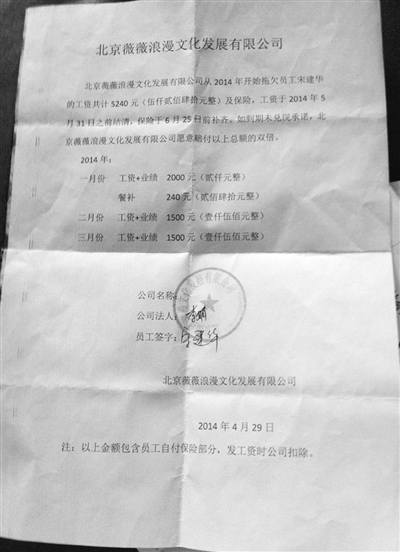 北京薇薇浪漫文化发展有限公司
北京薇薇浪漫文化发展有限公司从 2014 年开始拖欠员工宋建华
的工资共计 5240 元（伍仟贰佰肆拾元整）及保险，工资于 2014 年 5
月 31 日之前结清，保险于 6 月 25 日前补齐。如到期未兑现承诺，北
京薇薇浪漫文化发展有限公司愿意赔付以上总额的双倍。
2014 年：
一月份 工资+业绩 2000 元（贰仟元整）
餐补 240 元（贰佰肆拾元整）
二月份 工资+业绩 1500 元（壹仟伍佰元整）
三月份 工资+业绩 1500 元（壹仟伍佰元整）
公司名称：
公司法人：
员工签字：宋建华
北京薇薇浪漫文化发展有限公司
2014 年 4 月 29 日
注：以上金额包含员工自付保险部分，发工资时公司扣除。